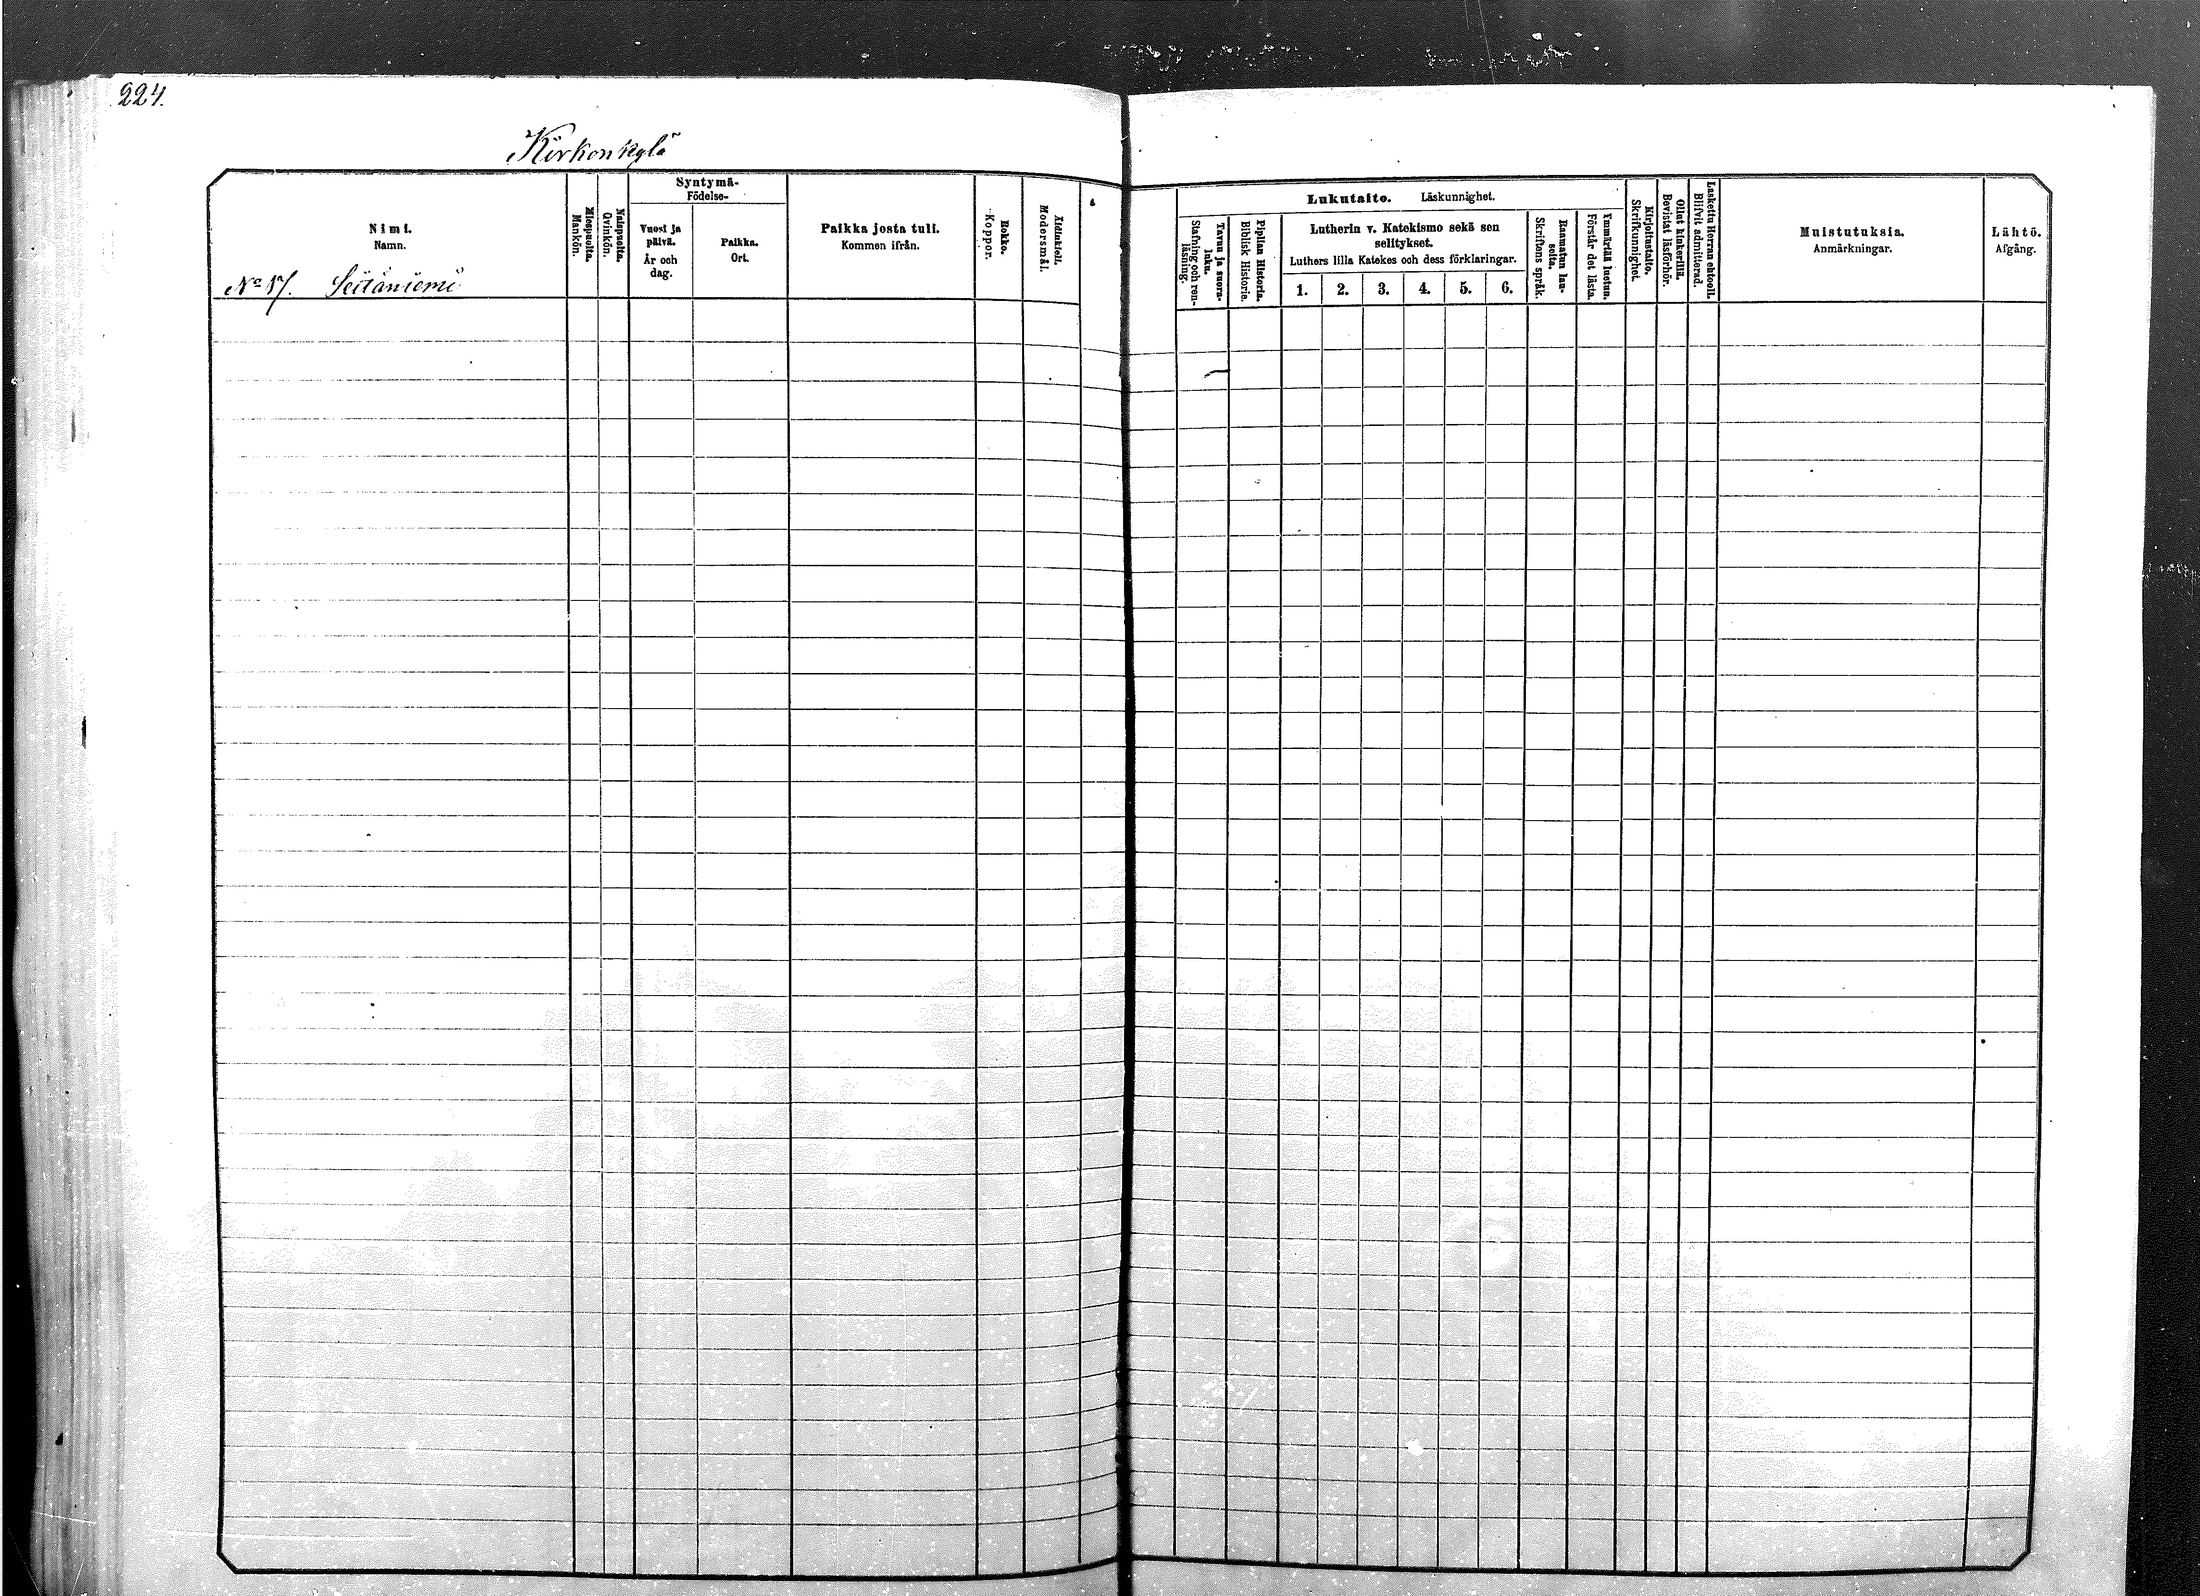 224.
Kirkonkylä
Nimi.
Namn.
Miespuolta.
Mankön.
Naispuolta.
Qvinkön.
Syntymä-
Födelse-
Vuosi ja
päivä.
År och
dag.
Paikka.
Ort.
Paikka josta tuli.
Kommen ifrån.
Rokko.
Koppor.
Äidinkieli.
Modersmål.
Lukutaito. Läskunnighet.
Tavuu ja suora-
luku.
Stafning och ren-
läsning.
Piplian Historia.
Biblisk Historie.
Lutherin v. Katekismo sekä sen
selitykset.
Luthers lilla Katekes och dess förklaringar.
1. 2. 3. 4. 5. 6.
Raamatun lau-
seita.
Skriftens språk.
Ymmärtää luetun.
Förstår det lästa.
Kirjoitustaito.
Skrifkunnighet.
Ollut kinkerillä.
Bevistat läsförhör.
Laskettu Herran ehtooll.
Blifvit admitterad.
Muistutuksia.
Anmärkningar.
Lähtö.
Afgång.
No 17. Seitäniemi